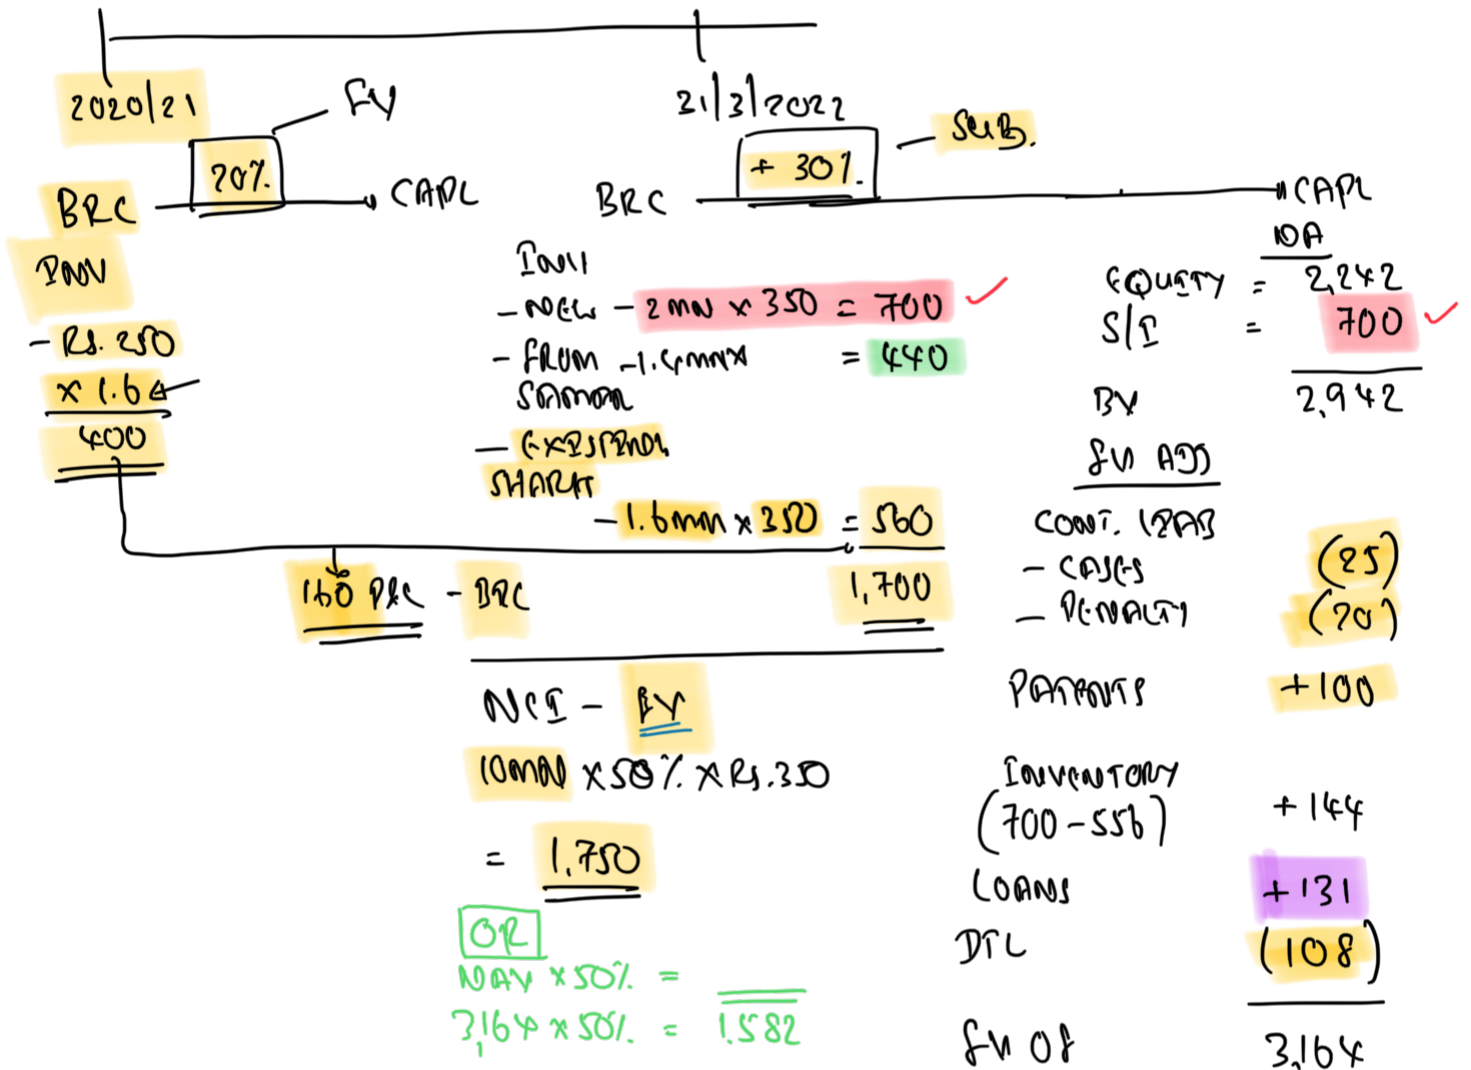 2020/21
FV
20%
BRC → CAPL
INV
- Rs. 250
× 1.6
400
31/3/2022
SUB.
+ 30%
BRC → CAPL
INV
- NEW - 2 MN × 350 = 700 ✓
- FROM - 1.4mn× = 440
SAMAR
- EXISTING
SHARE
- 1.6mn × 350 = 560
1,700
160 P&L - BRC
NCI - FV
10MN × 50% × Rs.350
= 1,750
OR
NAV × 50% =
3,164 × 50% = 1,582
NA
EQUITY = 2,242
S/I = 700 ✓
BV 2,942
FV ADJ
CONT. LIAB
- CASES (25)
- PENALTY (20)
PATENTS +100
INVENTORY
(700-556) +144
LOANS +131
DTL (108)
FV OF 3,164